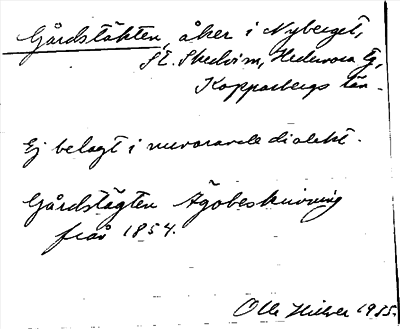 Gårdstäkten, åker i Nyberget,
St. Skedvi sn, Hedemora tg,
Kopparbergs län.
Ej belagt i nuvarande dialekt.
Gårdstägten Ägobeskrivning
från 1854.
Olle 1935.